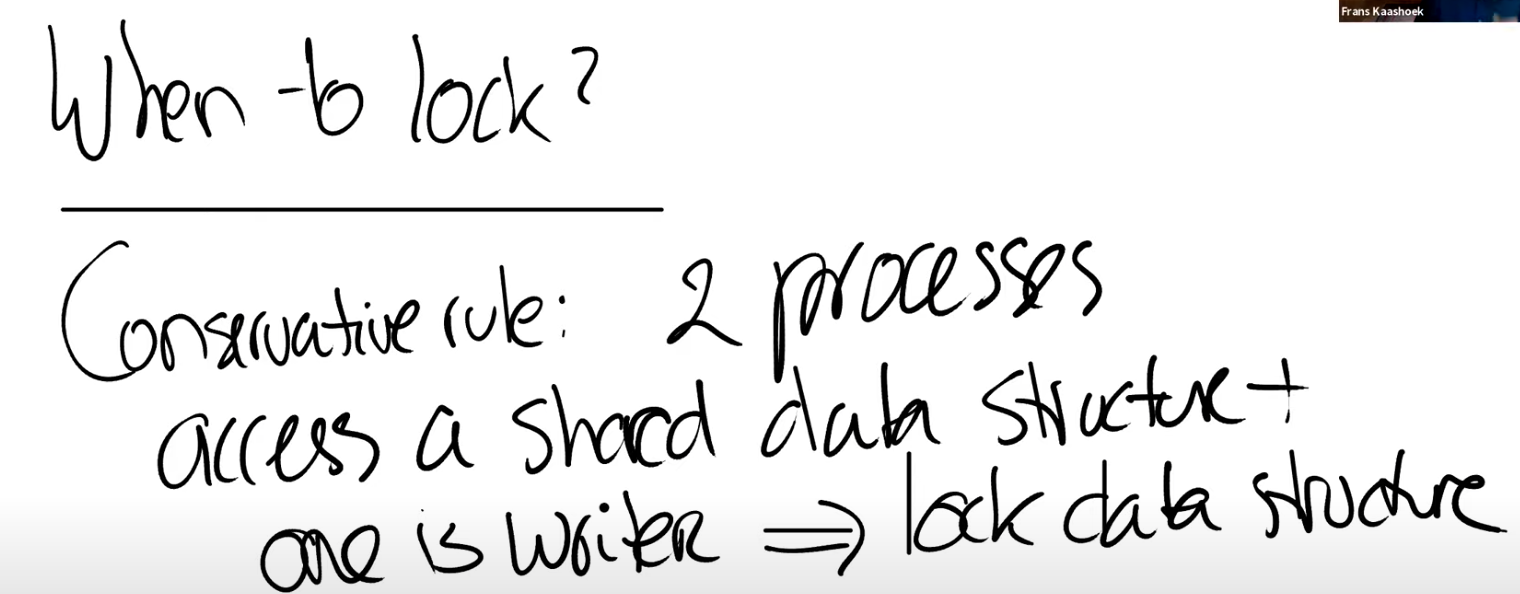 Frans Kaashoek
When to lock?
Conservative rule: 2 processes
access a shared data structure +
one is writer ⟹ lock data structure